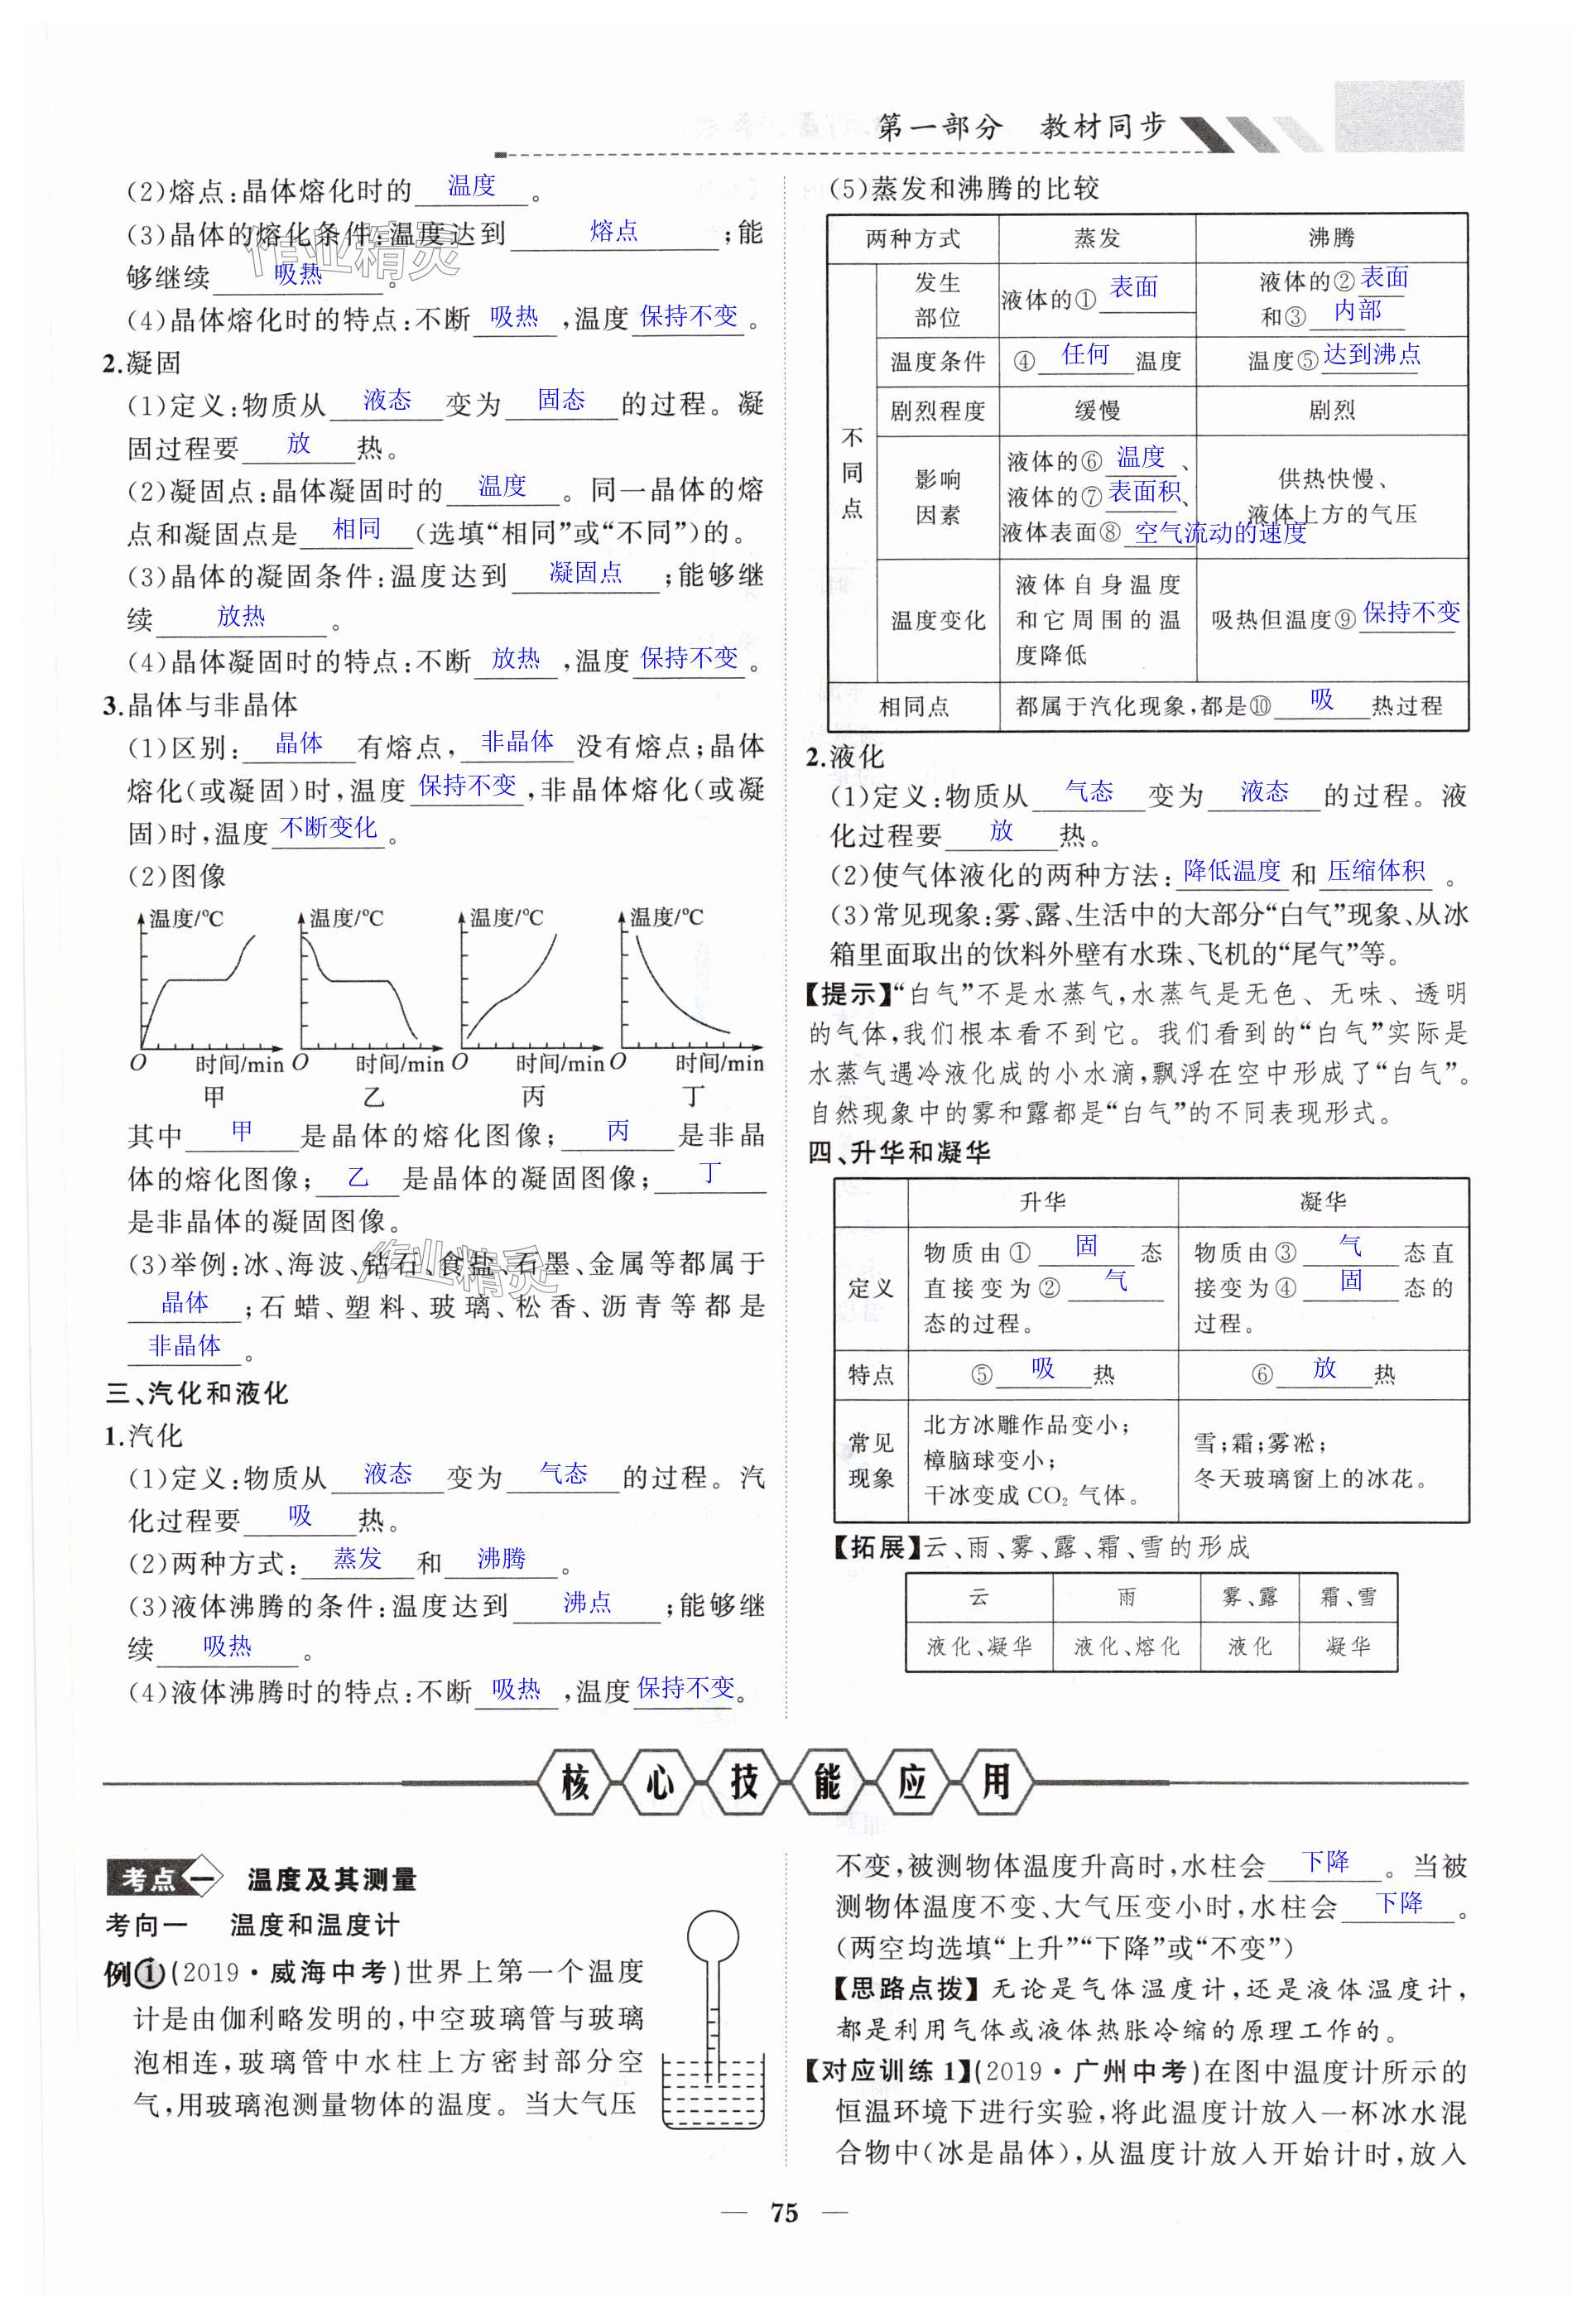 第一部分 教材同步
(2)熔点:晶体熔化时的 温度 。
(3)晶体的熔化条件:温度达到 熔点 ;能
够继续 吸热 。
(4)晶体熔化时的特点:不断 吸热 ,温度 保持不变 。
2.凝固
(1)定义:物质从 液态 变为 固态 的过程。凝
固过程要 放 热。
(2)凝固点:晶体凝固时的 温度 。同一晶体的熔
点和凝固点是 相同 (选填“相同”或“不同”)的。
(3)晶体的凝固条件:温度达到 凝固点 ;能够继
续 放热 。
(4)晶体凝固时的特点:不断 放热 ,温度 保持不变 。
3.晶体与非晶体
(1)区别: 晶体 有熔点, 非晶体 没有熔点;晶体
熔化(或凝固)时,温度 保持不变 ,非晶体熔化(或凝
固)时,温度 不断变化 。
(2)图像
温度/℃ 温度/℃ 温度/℃ 温度/℃
O 时间/min O 时间/min O 时间/min O 时间/min
甲 乙 丙 丁
其中 甲 是晶体的熔化图像; 丙 是非晶
体的熔化图像; 乙 是晶体的凝固图像; 丁
是非晶体的凝固图像。
(3)举例:冰、海波、钻石、食盐、石墨、金属等都属于
晶体 ;石蜡、塑料、玻璃、松香、沥青等都是
非晶体 。
三、汽化和液化
1.汽化
(1)定义:物质从 液态 变为 气态 的过程。汽
化过程要 吸 热。
(2)两种方式: 蒸发 和 沸腾 。
(3)液体沸腾的条件:温度达到 沸点 ;能够继
续 吸热 。
(4)液体沸腾时的特点:不断 吸热 ,温度 保持不变 。
(5)蒸发和沸腾的比较
两种方式 蒸发 沸腾
不同点
发生部位 液体的① 表面 液体的② 表面
和③ 内部
温度条件 ④ 任何 温度 温度⑤ 达到沸点
剧烈程度 缓慢 剧烈
影响因素 液体的⑥ 温度 、
液体的⑦ 表面积 、
液体表面⑧ 空气流动的速度
供热快慢、
液体上方的气压
温度变化 液体自身温度
和它周围的温
度降低
吸热但温度⑨ 保持不变
相同点 都属于汽化现象,都是⑩ 吸 热过程
2.液化
(1)定义:物质从 气态 变为 液态 的过程。液
化过程要 放 热。
(2)使气体液化的两种方法: 降低温度 和 压缩体积 。
(3)常见现象:雾、露、生活中的大部分“白气”现象、从冰
箱里面取出的饮料外壁有水珠、飞机的“尾气”等。
【提示】“白气”不是水蒸气,水蒸气是无色、无味、透明
的气体,我们根本看不到它。我们看到的“白气”实际是
水蒸气遇冷液化成的小水滴,飘浮在空中形成了“白气”。
自然现象中的雾和露都是“白气”的不同表现形式。
四、升华和凝华
升华 凝华
定义 物质由① 固 态
直接变为② 气
态的过程。
物质由③ 气 态直
接变为④ 固 态的
过程。
特点 ⑤ 吸 热 ⑥ 放 热
常见现象 北方冰雕作品变小;
樟脑球变小;
干冰变成CO₂气体。
雪;霜;雾凇;
冬天玻璃窗上的冰花。
【拓展】云、雨、雾、露、霜、雪的形成
云 雨 雾、露 霜、雪
液化、凝华 液化、熔化 液化 凝华
核心技能应用
考点一 温度及其测量
考向一 温度和温度计
例1(2019·威海中考)世界上第一个温度
计是由伽利略发明的,中空玻璃管与玻璃
泡相连,玻璃管中水柱上方密封部分空
气,用玻璃泡测量物体的温度。当大气压
不变,被测物体温度升高时,水柱会 下降 。当被
测物体温度不变、大气压变小时,水柱会 下降 。
(两空均选填“上升”“下降”或“不变”)
【思路点拨】无论是气体温度计,还是液体温度计,
都是利用气体或液体热胀冷缩的原理工作的。
【对应训练1】(2019·广州中考)在图中温度计所示的
恒温环境下进行实验,将此温度计放入一杯冰水混
合物中(冰是晶体),从温度计放入开始计时,放入
— 75 —
作业精灵
作业精灵